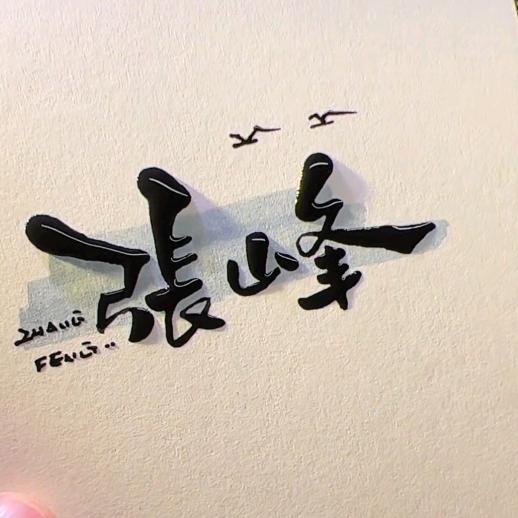 張峰
ZHANG
FENG..